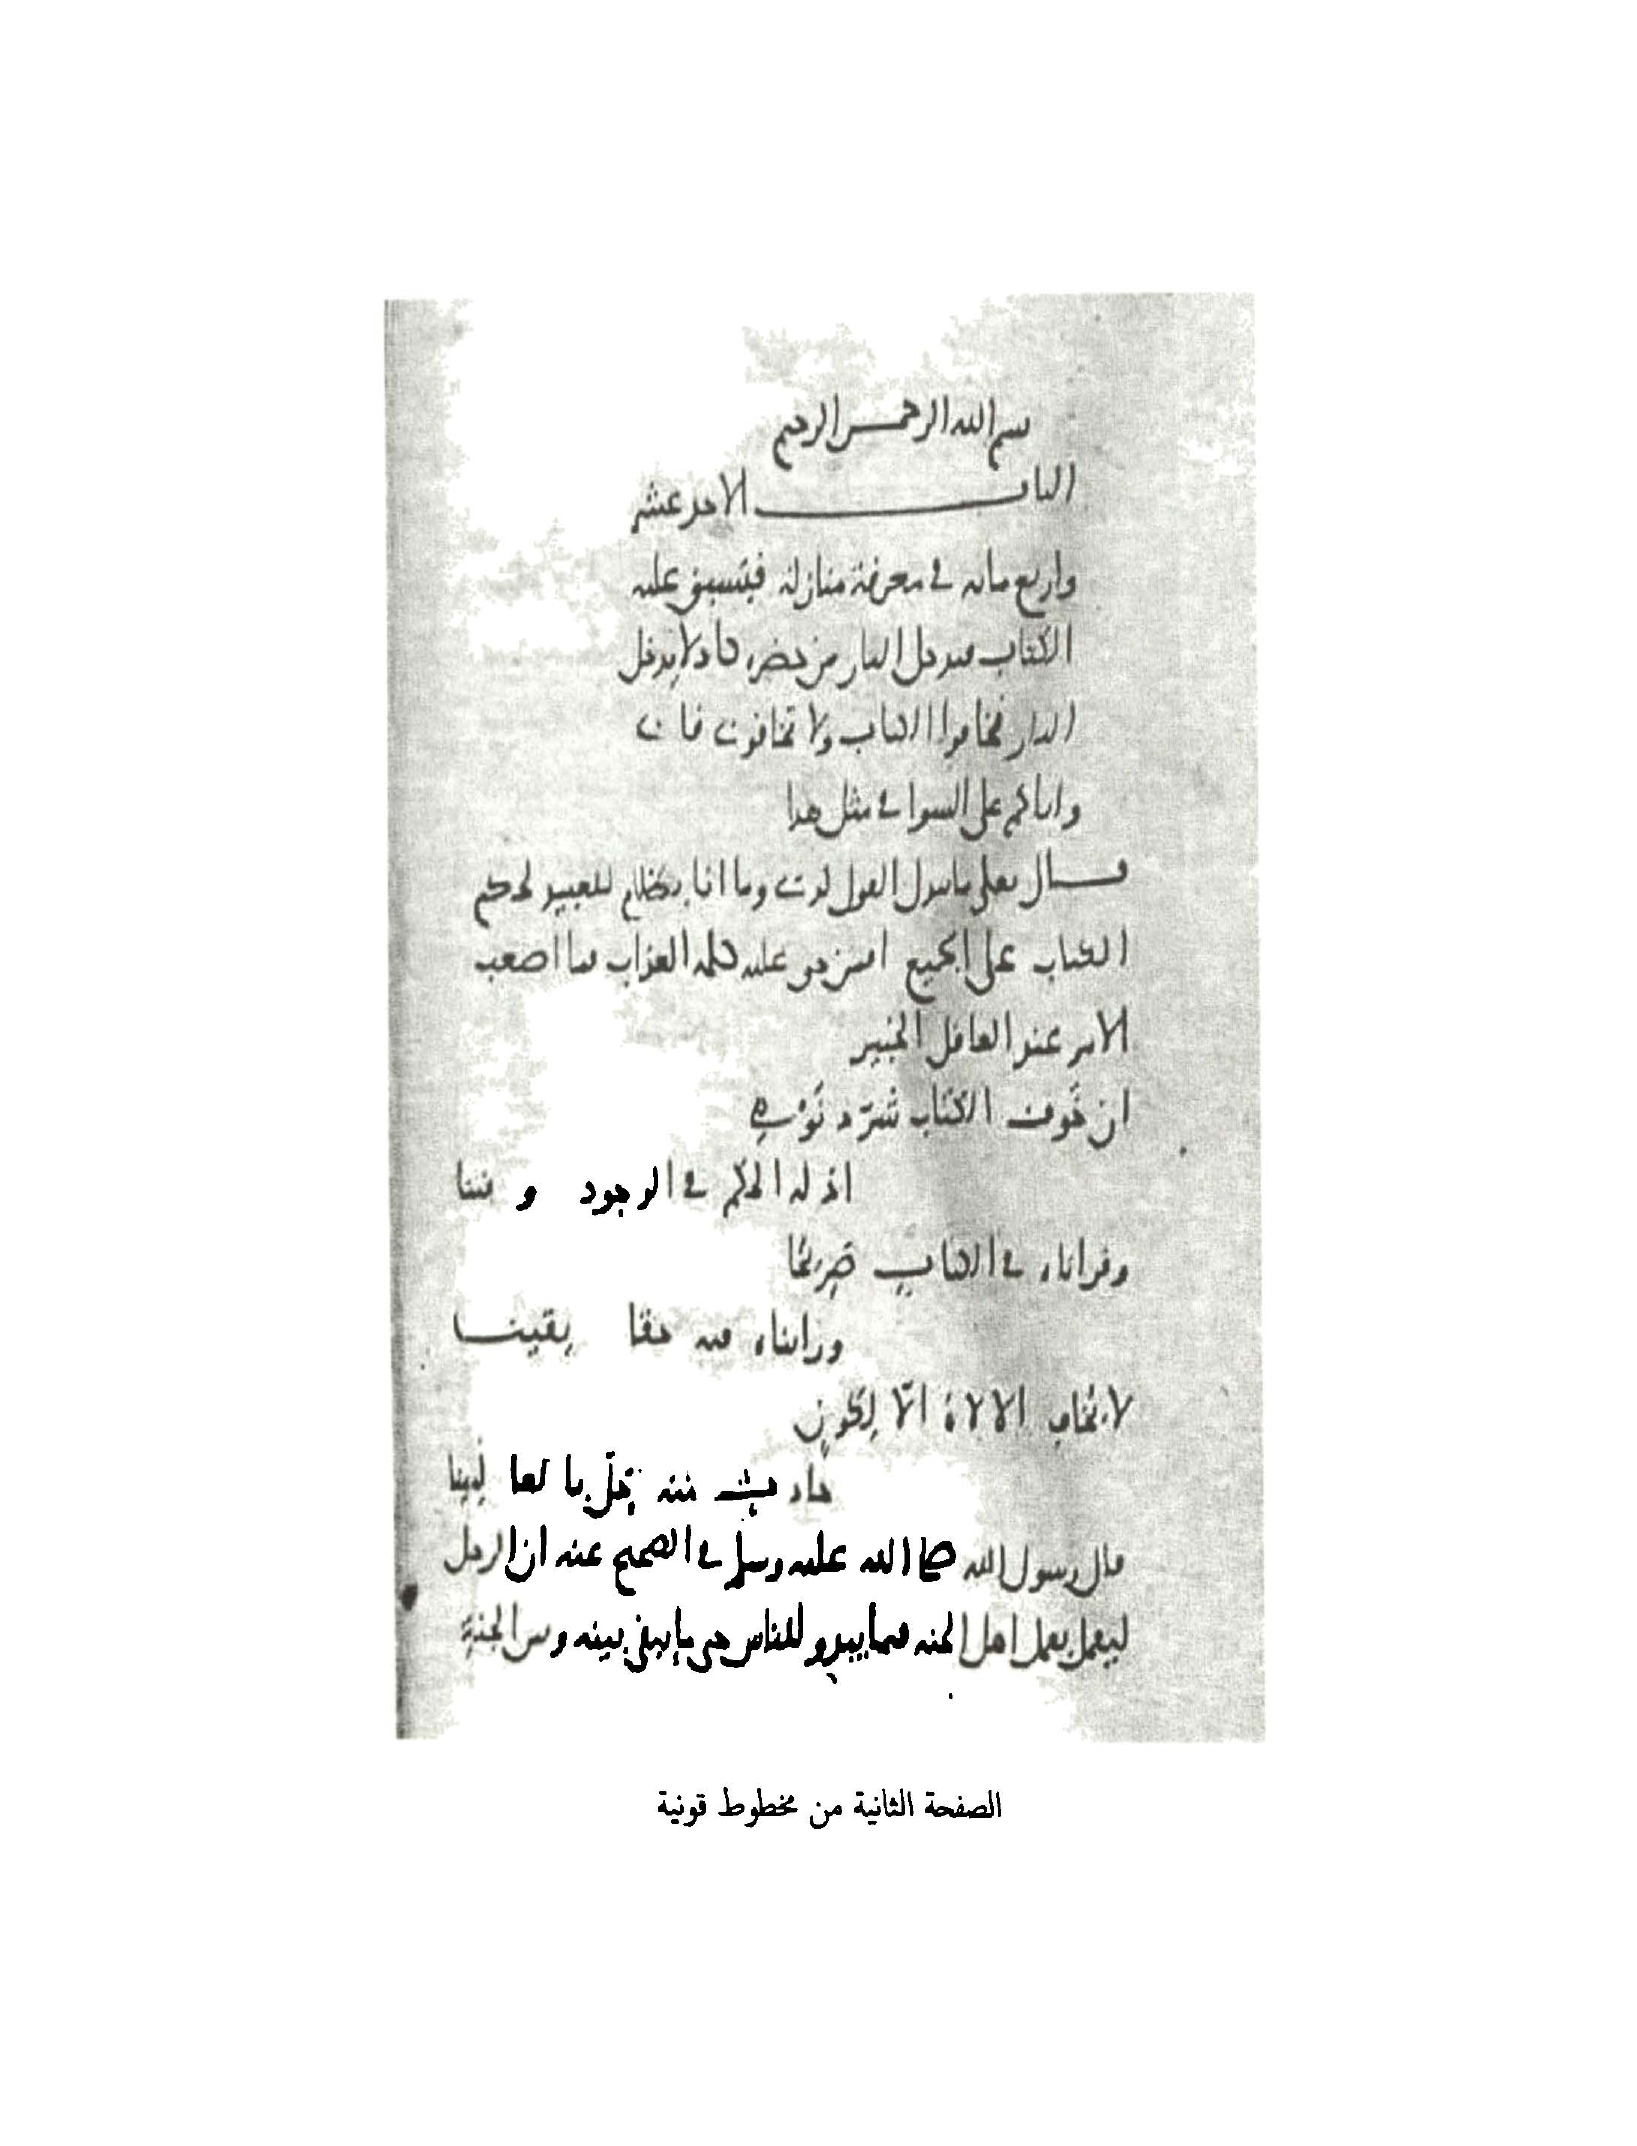 بسم الله الرحمن الرحيم
الباب الاحد عشر
واربع مائه في معرفة منازلة فيسبق عليه
الكتاب فيدخل النار من حضرة كاد لا يدخل
النار فخافوا الكتاب ولا تخافون فاني
واياكم على السوا في مثل هذا
قال تعلى ما يبدل القول لدي وما انا بظلام للعبيد لحكم
الكتاب على الجميع افمن حق عليه كلمه العذاب فما اصعب
الامر عند العاقل الخبير
ان خَوف الكتاب شرّد نَوْمِي
اذ له الحكم في الوجود و فينا
وقراناه في الكتاب صريحًا
ورايناه فيه حقا يقينا
لا تخاف الالاه الّا لِكونٍ
حادث منه يحلّ بالعالمينا
قال رسول الله صلى الله عليه وسلم في الصحيح عنه ان الرجل
ليعمل بعمل اهل الجنه فيما يبدو للناس حتى ما يبقى بينه وبين الجنة
الصفحة الثانية من مخطوط قونية